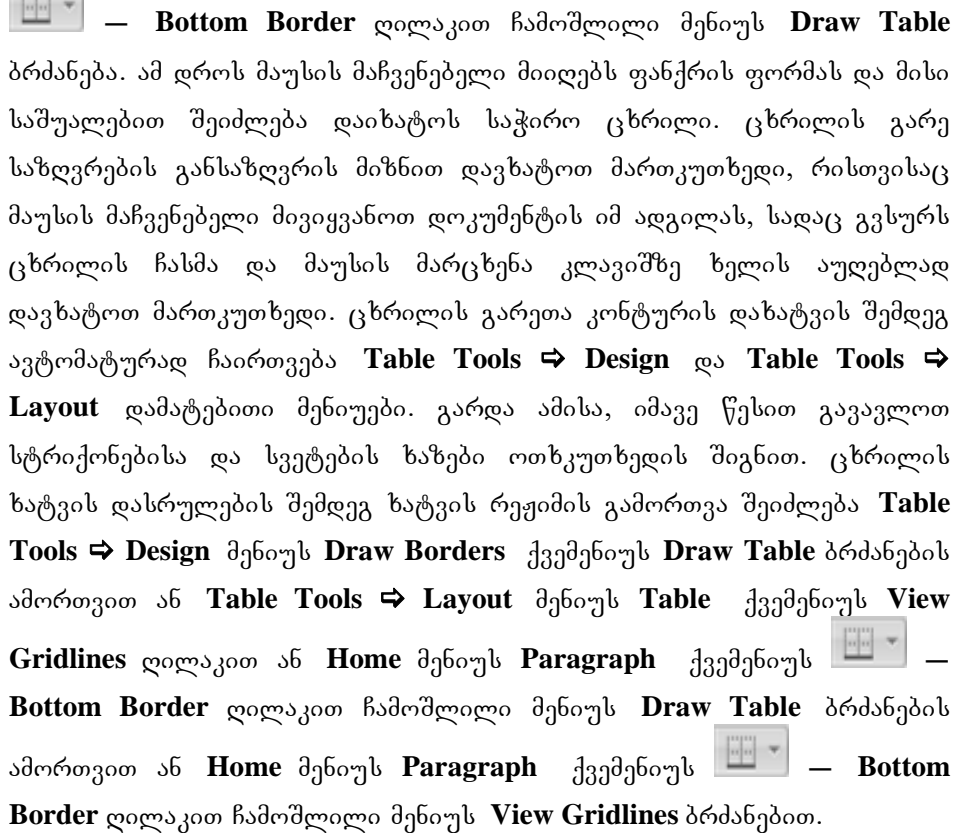 — Bottom Border ღილაკით ჩამოშლილი მენიუს Draw Table
ბრძანება. ამ დროს მაუსის მაჩვენებელი მიიღებს ფანქრის ფორმას და მისი
საშუალებით შეიძლება დაიხატოს საჭირო ცხრილი. ცხრილის გარე
საზღვრების განსაზღვრის მიზნით დავხატოთ მართკუთხედი, რისთვისაც
მაუსის მაჩვენებელი მივიყვანოთ დოკუმენტის იმ ადგილას, სადაც გვსურს
ცხრილის ჩასმა და მაუსის მარცხენა კლავიშზე ხელის აუღებლად
დავხატოთ მართკუთხედი. ცხრილის გარეთა კონტურის დახატვის შემდეგ
ავტომატურად ჩაირთვება Table Tools ⇨ Design და Table Tools ⇨
Layout დამატებითი მენიუები. გარდა ამისა, იმავე წესით გავავლოთ
სტრიქონებისა და სვეტების ხაზები ოთხკუთხედის შიგნით. ცხრილის
ხატვის დასრულების შემდეგ ხატვის რეჟიმის გამორთვა შეიძლება Table
Tools ⇨ Design მენიუს Draw Borders ქვემენიუს Draw Table ბრძანების
ამორთვით ან Table Tools ⇨ Layout მენიუს Table ქვემენიუს View
Gridlines ღილაკით ან Home მენიუს Paragraph ქვემენიუს —
Bottom Border ღილაკით ჩამოშლილი მენიუს Draw Table ბრძანების
ამორთვით ან Home მენიუს Paragraph ქვემენიუს — Bottom
Border ღილაკით ჩამოშლილი მენიუს View Gridlines ბრძანებით.